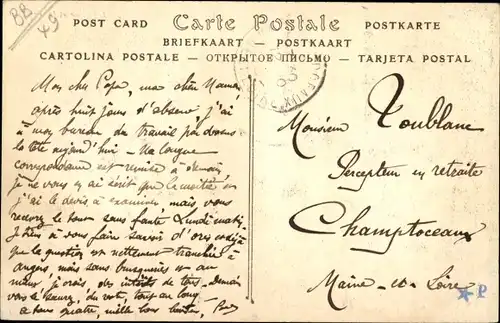 BB
49
POST CARD Carte Postale POSTKARTE
BRIEFKAART — POSTKAART
CARTOLINA POSTALE — ОТКРЫТОЕ ПИСЬМО — TARJETA POSTAL
Mon cher Papa, ma chère Maman,
après huit jours d'absence, j'ai
à mon bureau du travail par dessus
la tête aujourd'hui. Une longue
correspondance est remise à demain,
je ne vous en ai écrit que la moitié
j'ai le devis à examiner, mais vous
recevrez le tout sans faute Lundi matin.
Je tiens à vous faire savoir d'ores et déjà
que la question est nettement tranchée à
Angers, mais sans brusqueries et au
mieux, je crois, des intérêts de tous. Demain
vers le, du reste, tout au long
à tous quatre, mille bons
Monsieur Toublanc
Percepteur en retraite
Champtoceaux
Maine-et-Loire
P